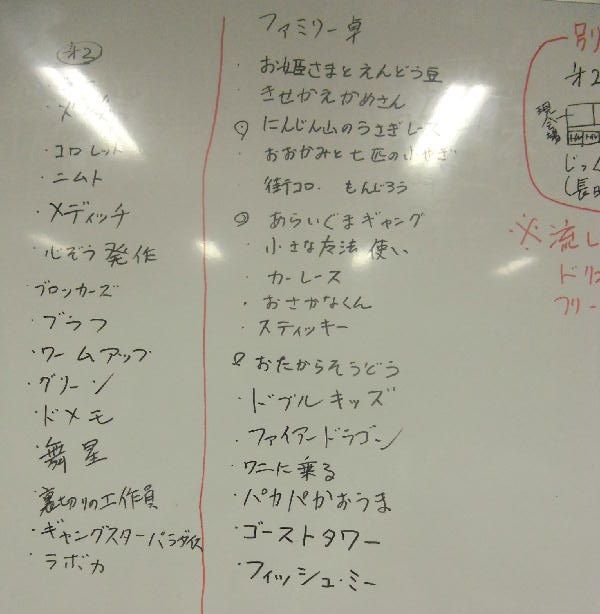 才2
コロレット
ニムト
メディッチ
心ぞう発作
ブロッカーズ
ブラフ
ワームアップ
グリーン
ドメモ
舞星
裏切りの工作員
ギャングスターパラダイス
ラボカ
ファミリー卓
お姫さまとえんどう豆
きせかえかめさん
にんじん山のうさぎレース
おおかみと七匹の小やぎ
街コロ もんじろう
あらいぐまギャング
小さな魔法使い
カーレース
おさかなくん
スティッキー
おたからそうどう
ドブルキッズ
ファイアードラゴン
ワニに乗る
パカパカおうま
ゴーストタワー
フィッシュ・ミー
別
才2
現会場
じっく
(長田
※流し
ドリン
フリー